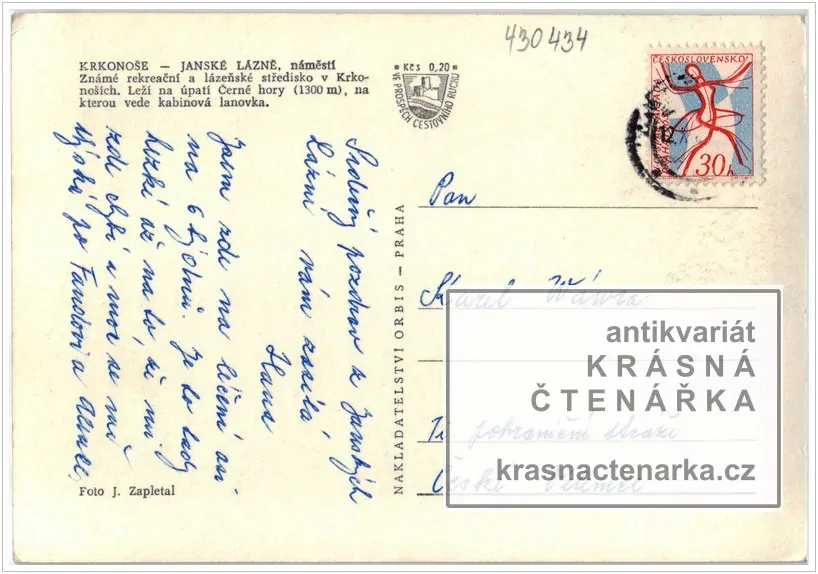 430434
KRKONOŠE — JANSKÉ LÁZNĚ, náměstí
Známé rekreační a lázeňské středisko v Krko-
noších. Leží na úpatí Černé hory (1300 m), na
kterou vede kabinová lanovka.
Kčs 0,20
VE PROSPĚCH CESTOVNÍHO RUCHU
ČESKOSLOVENSKO
30h
Srdečný pozdrav z Janských
Lázní vám zasílá
Hana
Jsem zde na léčení asi
na 6 týdnů. Je to tady
hezké až na to, že mi
zde chybí a moc se mi
stýská po Fandovi a
NAKLADATELSTVÍ ORBIS — PRAHA
Pan
Karel Wávra
Ti. pohraniční stráže
České
antikvariát
KRÁSNÁ
ČTENÁŘKA
krasnactenarka.cz
Foto J. Zapletal